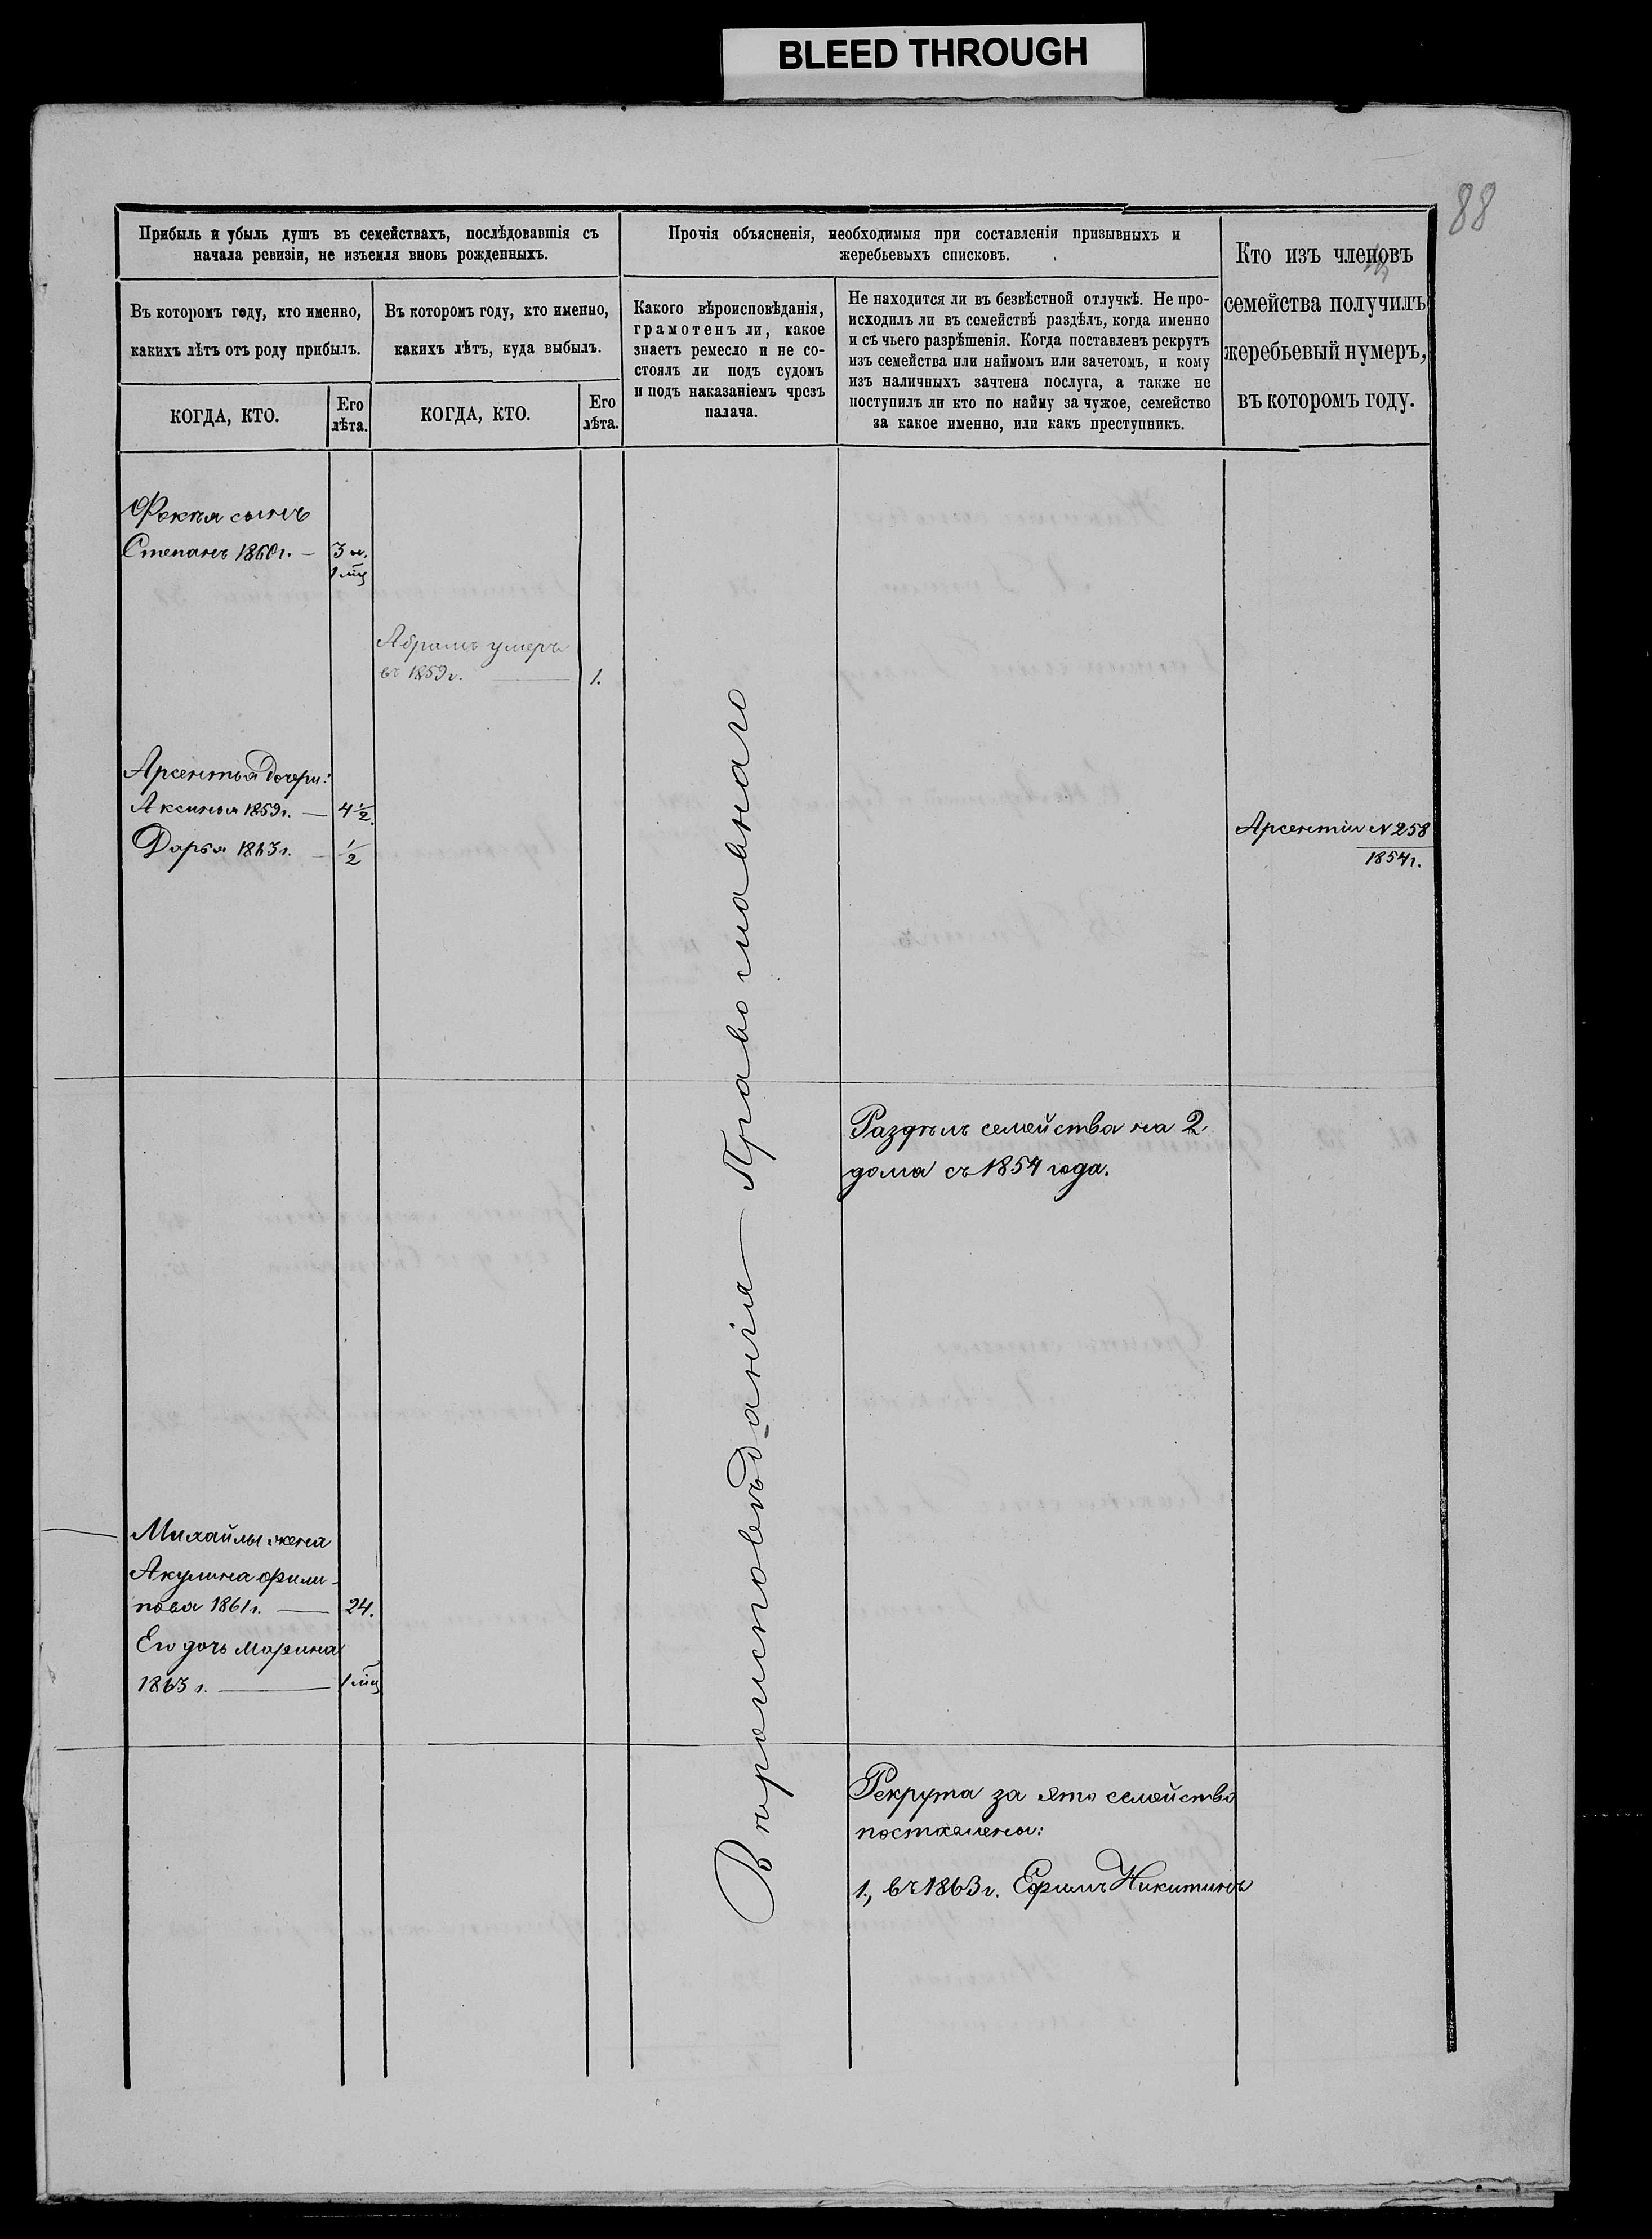 BLEED THROUGH
88
Прибыль и убыль душъ въ семействахъ, послѣдовавшія съ
начала ревизіи, не изъемля вновь рожденныхъ.
Въ которомъ году, кто именно,
какихъ лѣтъ отъ роду прибылъ.
КОГДА, КТО.
Его
лѣта.
Въ которомъ году, кто именно,
какихъ лѣтъ, куда выбылъ.
КОГДА, КТО.
Его
лѣта.
Прочія объясненія, необходимыя при составленіи призывныхъ и
жеребьевыхъ списковъ.
Какого вѣроисповѣданія,
грамотенъ ли, какое
знаетъ ремесло и не со-
стоялъ ли подъ судомъ
и подъ наказаніемъ чрезъ
палача.
Не находится ли въ безвѣстной отлучкѣ. Не про-
исходилъ ли въ семействѣ раздѣлъ, когда именно
и съ чьего разрѣшенія. Когда поставленъ рекрутъ
изъ семейства или наймомъ или зачетомъ, и кому
изъ наличныхъ зачтена послуга, а также не
поступилъ ли кто по найму за чужое, семейство
за какое именно, или какъ преступникъ.
Кто изъ членовъ
семейства получилъ
жеребьевый нумеръ,
въ которомъ году.
сынъ
Степанъ 1860 г. — 3
1 мц
Абрамъ умеръ
въ 1859 г. — 1.
Арсентья дочери:
Аксинья 1859 г. — 4 1/2.
Дарья 1863 г. — 1/2
Арсентій N 258
1854 г.
Вѣроисповѣданія — Православнаго
Раздѣлъ семейства на 2
дома съ 1854 года.
Михайлы жена
Акулина Фили-
пова 1861 г. — 24.
Его дочь Марина
1863 г. — 1 мц
Рекрута за это семейство
поставлены:
1., въ 1863 г. Ефимъ Никитинъ